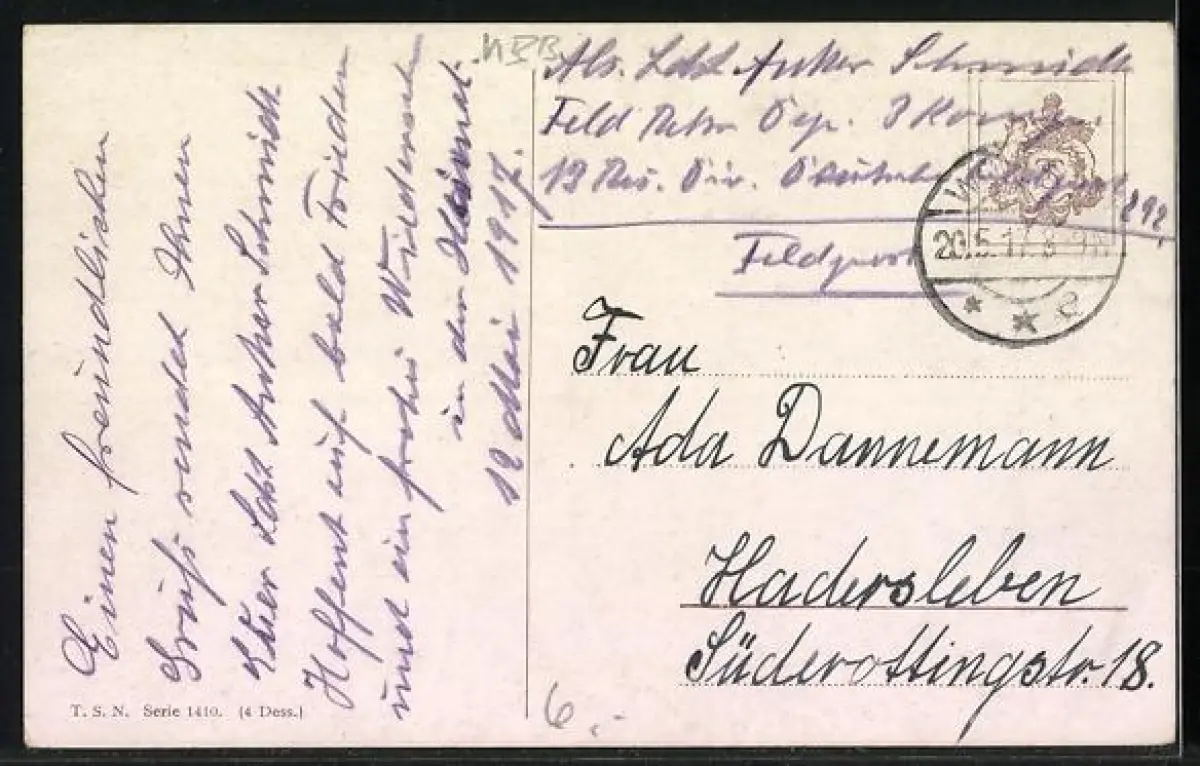 Einen freundlichen
Gruß sendet Ihnen
Arthur Schmidt
Hoffent auf bald Frieden
und ein frohes Wiedersehen
in der Heimat.
12 Mai 1917.
T. S. N. Serie 1410. (4 Dess.)
Abs. Ldst Arthur Schmidt
Feld Rekr Dep. 3 Komp.
13 Res. Div. Deutsche Feldpost 292.
Feldpost
20.5.17. 8-9
* * e
Frau
Ada Dannemann
Hadersleben
Süderottingstr. 18.
6.-